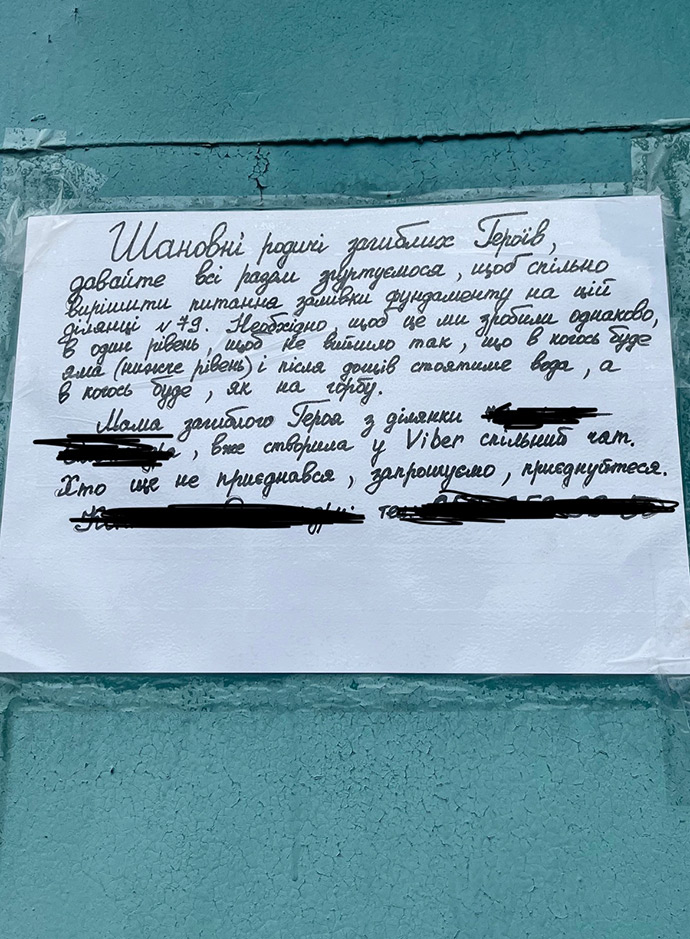 Шановні родичі загиблих Героїв,
давайте всі разом згуртуємося, щоб спільно
вирішити питання заливки фундаменту на цій
ділянці №79. Необхідно, щоб це ми зробили однаково,
в один рівень, щоб не вийшло так, що в когось буде
яма (нижче рівень) і після дощів стоятиме вода, а
в когось буде, як на горбу.
Мама загиблого Героя з ділянки
, вже створила у Viber спільний чат.
Хто ще не приєднався, запрошуємо, приєднуйтеся.